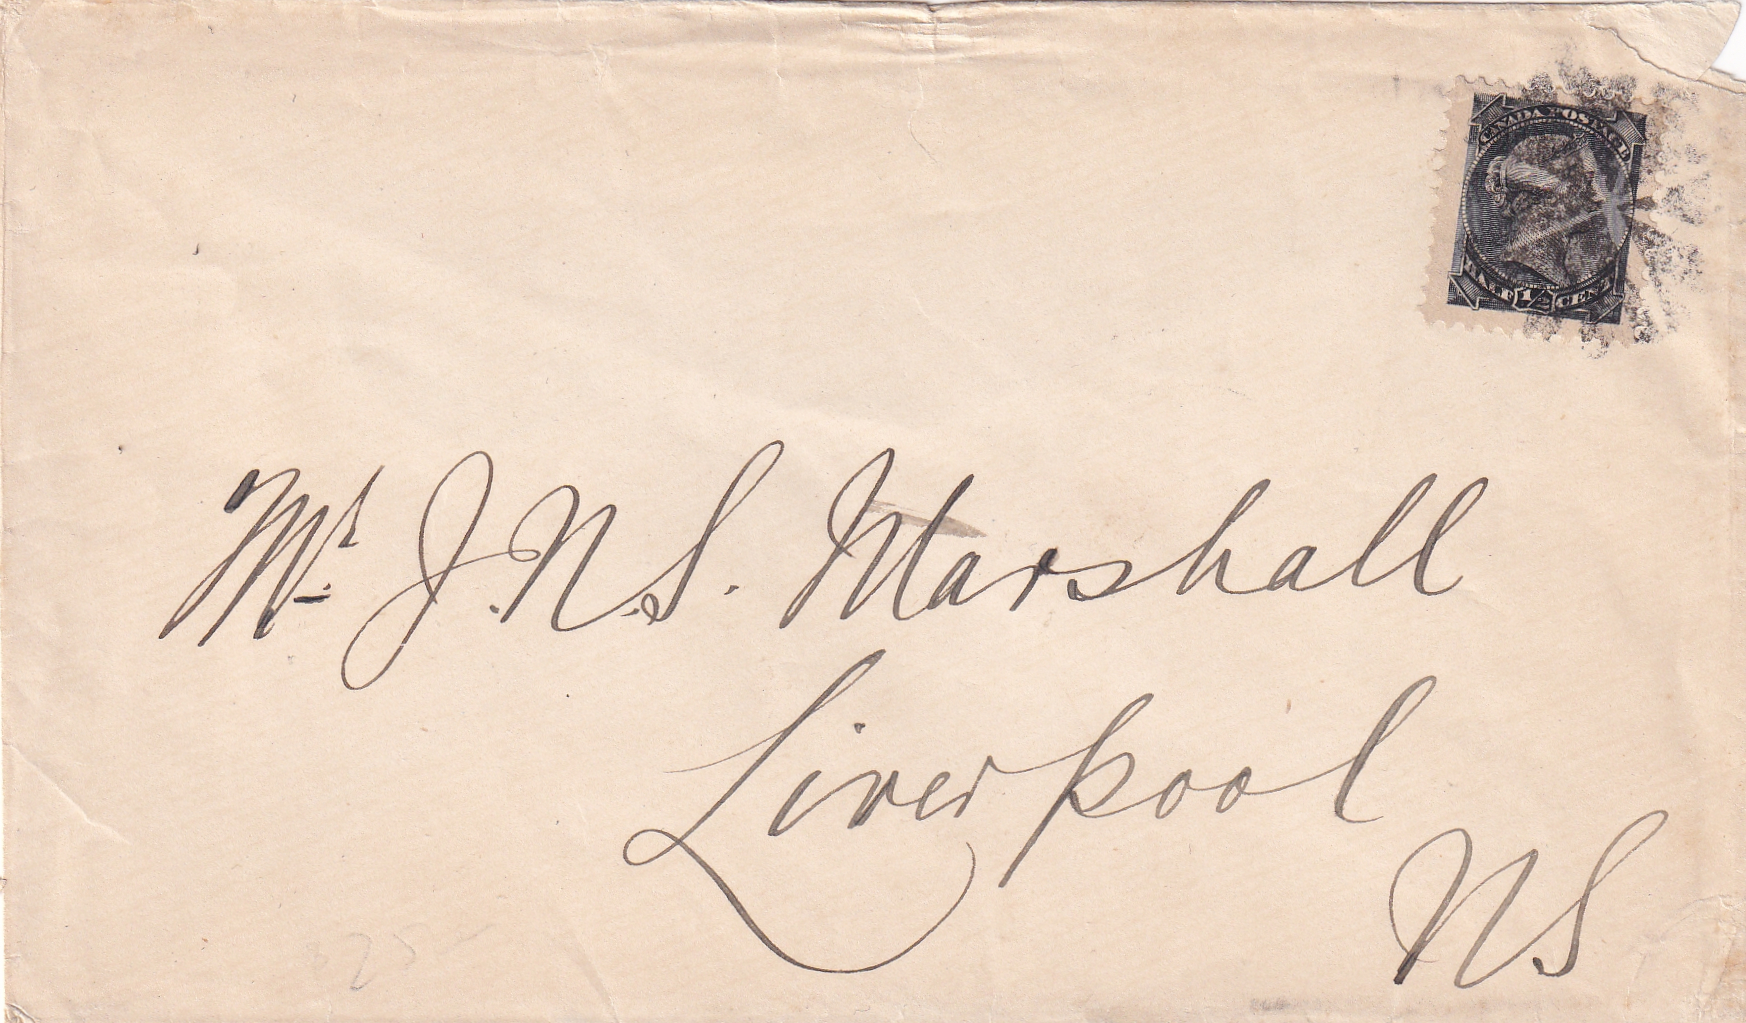 CANADA POSTAGE
HALF 1/2 CENT
Mr. J. N. S. Marshall
Liverpool
NS
25